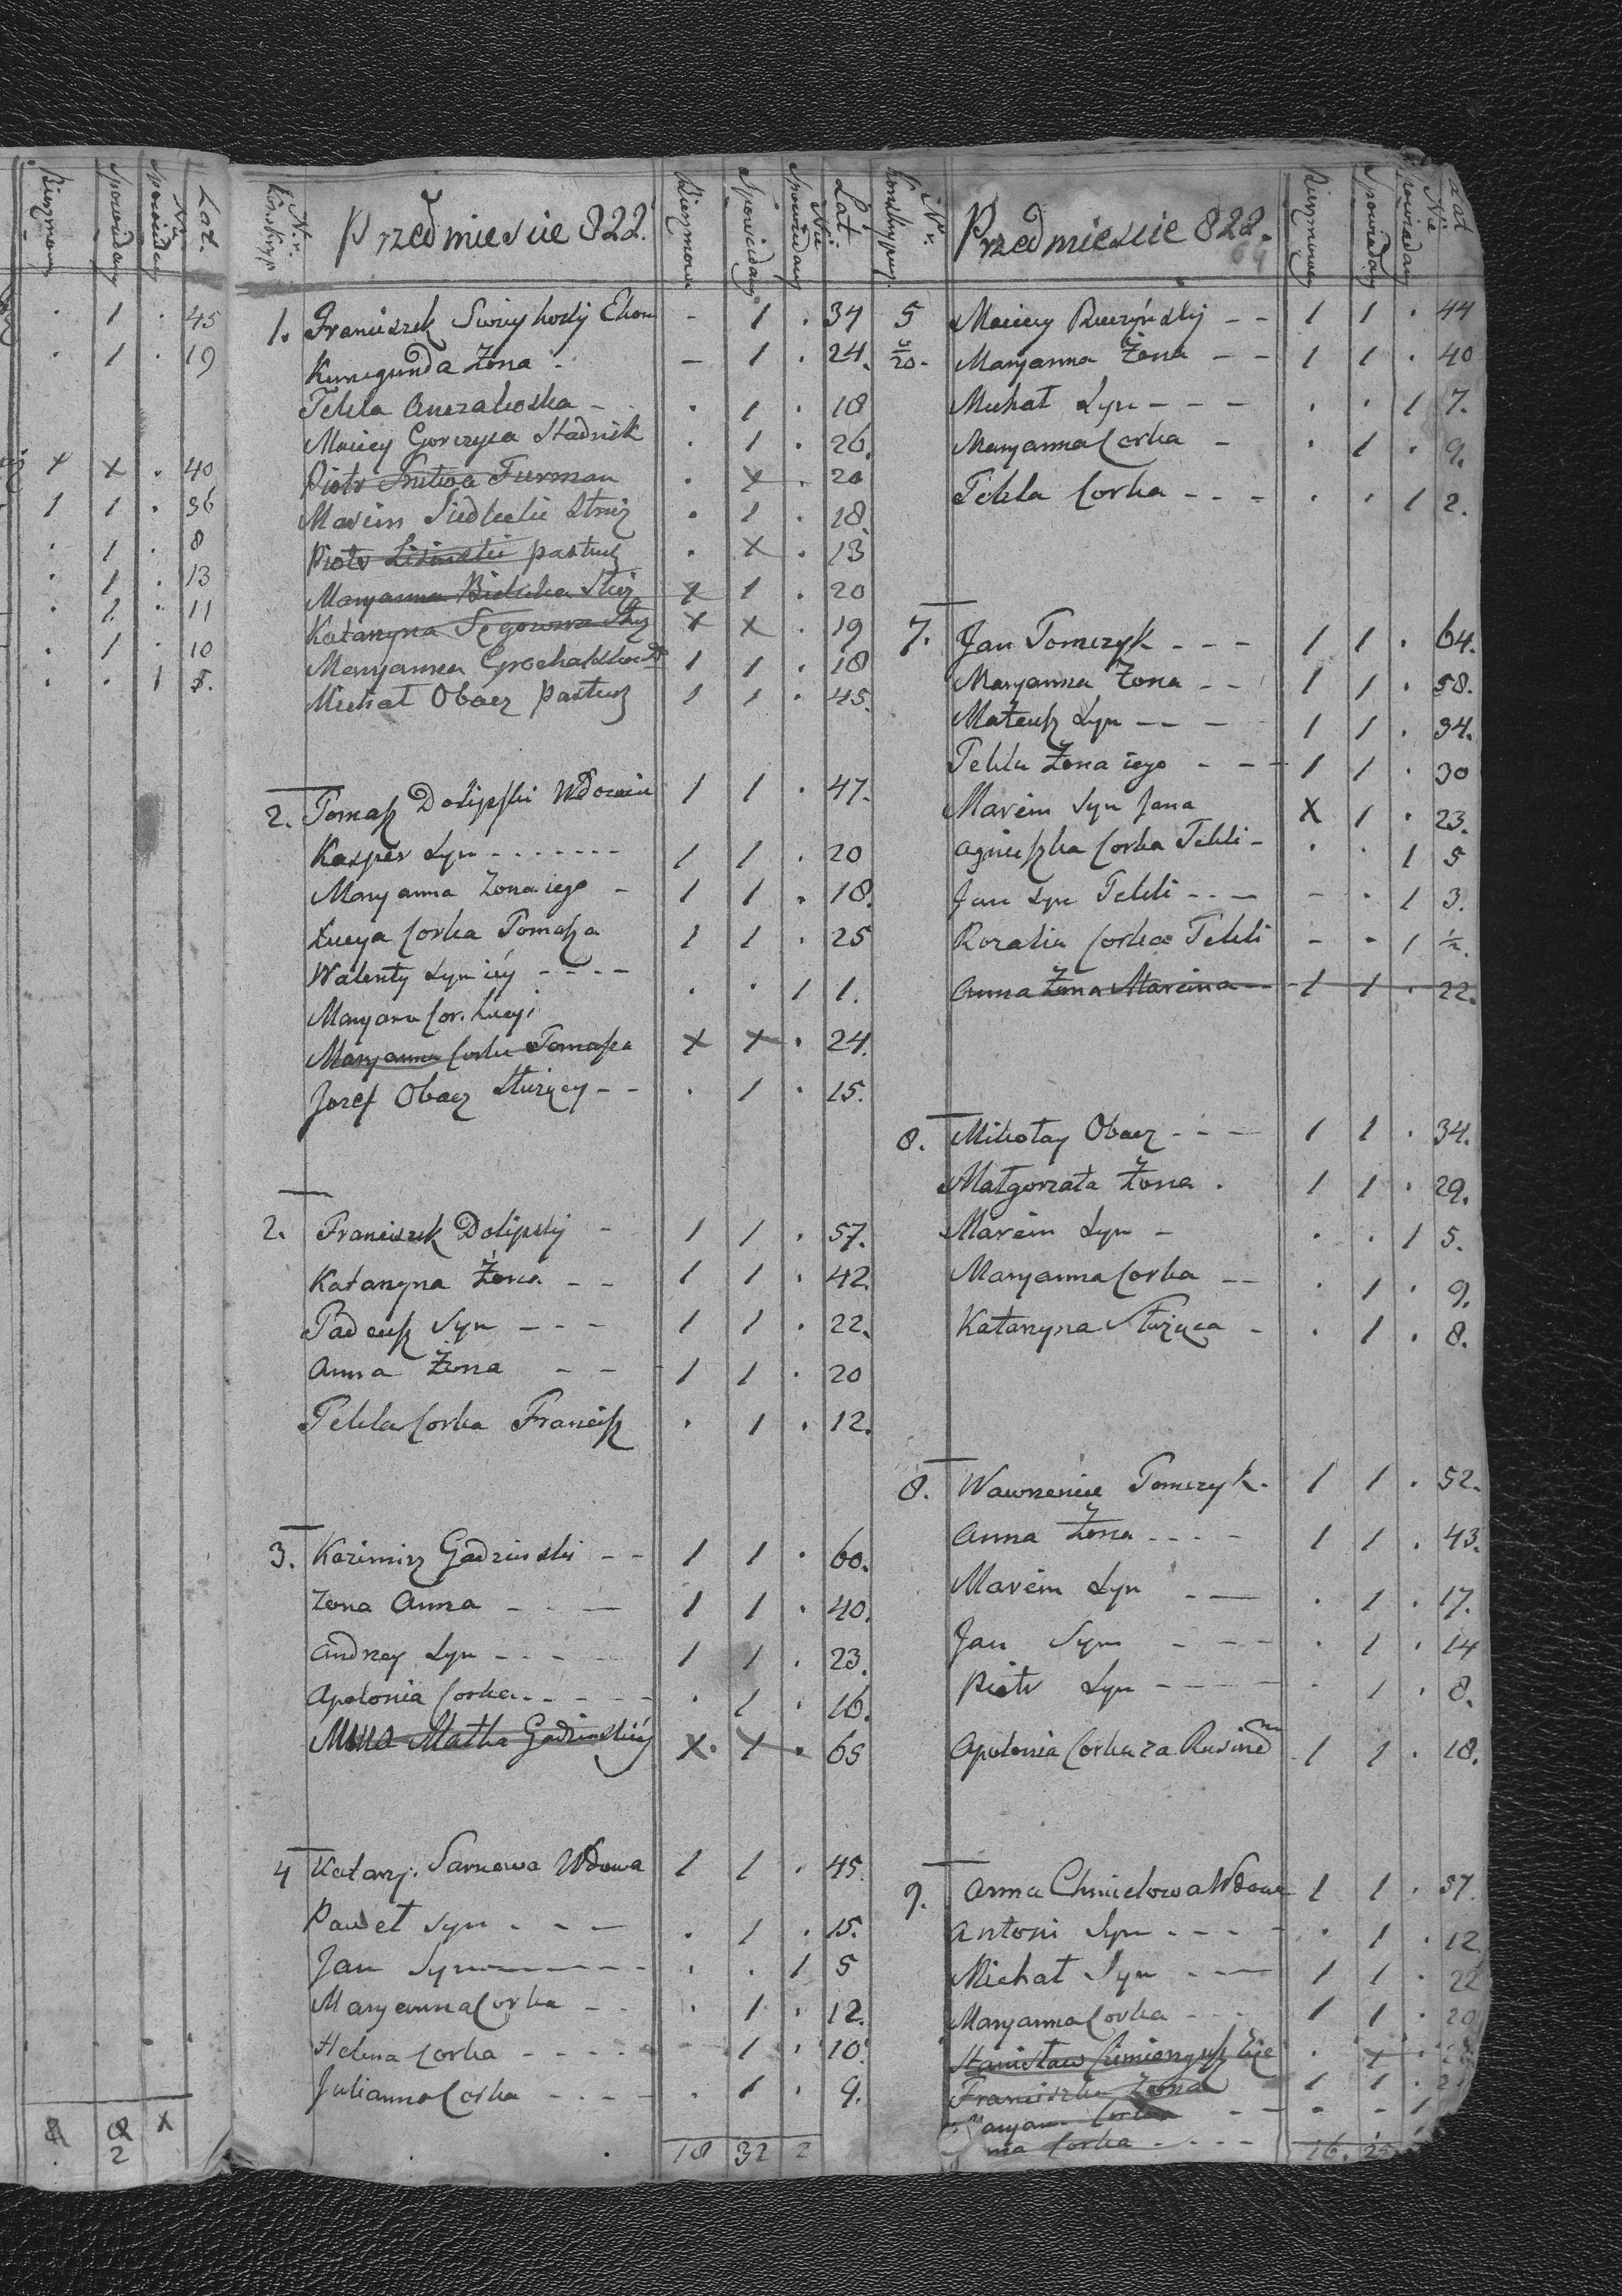 Bierzmowany Spowiadany Nie Spowiadany Lat.
. 1 . 45
. 1 . 19
x x . 40
1 1 . 36
. 1 . 8
. 1 . 13
. 1 . 11
. 1 . 10
. . 1
2
Nr. Przedmiescie 822. Bierzmowa Spowiadany Nie Spowiadany Lat
1. Franciszek Ekon - 1 . 34
Kunegunda Żona . - 1 . 24.
Tekla - . 1 . 18
Maciey Gorczyca Stadnik . 1 . 26.
Piotr Furman . x . 20
Marcin Siedlecki Stroż . 1 . 18.
Piotr Lisinski pastuch . x . 13
Maryanna Służ x 1 . 20
Katarzyna Służ x x . 19
Maryanna 1 1 . 18
Michał Obacz Pastuch 1 1 . 45.
2. Tomasz Dolipski Wdowiec 1 1 . 47.
Kasper Syn - - - 1 1 . 20
Maryanna Zona iego - 1 1 . 18.
Łucya Corka Tomasza 1 1 . 25
Walenty Syn iey - - - - . . 1 1.
Maryana Cor. Łucyi
Maryanna Corka Tomasza x x . 24.
Jozef Obacz Służący - - . 1 . 15.
2. Franciszek Dolipskij - 1 1 . 57.
Katarzyna Żona - - 1 1 . 42.
Tadeusz Syn - - - 1 1 . 22.
Anna Żona - - 1 1 . 20
Tekla Corka Francisz . 1 . 12.
3. Kazimirz Gadzinski - - 1 1 . 60.
Zona Anna - - - 1 1 . 40.
Andrzey Syn - - - 1 1 . 23.
Apolonia Corka - - - - . 1 . 16.
Matka Gadzinskiey x . 1 . 65
4 Katarz. Sarnowa Wdowa 1 1 . 45.
Paweł Syn - - - . 1 . 15.
Jan Syn - - - - . . 1 5
Maryanna Corka - - . 1 . 12.
Helena Corka - - - - . 1 . 10.
Julianna Corka - - - - . 1 . 9.
18 32 2
Nr. Przedmiescie 822. Bierzmowany Spowiadany Nie Spowiadany Lat
5 Maciey - - 1 1 . 44
6/20. Maryanna Żona - - 1 1 . 40
Michał Syn - - - . . 1 7.
Maryanna Corka - . 1 . 9.
Tekla Corka - - - . . 1 2.
7. Jan Tomczyk - - - 1 1 . 64.
Maryanna Żona - - 1 1 . 58.
Mateusz Syn - - - 1 1 . 34.
Tekla Żona iego - - - 1 1 . 30
Marcin Syn Jana x 1 . 23.
Agnieszka Corka Tekli - . . 1 5
Jan Syn Tekli - - - - . 1 3.
Rozalia Corka Tekli - - 1 ½.
Anna Żona Marcina - 1 1 . 22.
8. Mikołay Obacz - - - 1 1 . 34.
Małgorzata Żona . 1 1 . 29.
Marcin Syn - . . 1 5.
Maryanna Corka - - . 1 . 9.
Katarzyna Służąca - . 1 . 8.
8. Wawrzeniec Tomczyk . 1 1 . 52.
Anna Żona - - - - 1 1 . 43.
Marcin Syn - - . 1 . 17.
Jan Syn - - - . 1 . 14
Piotr Syn - - - - . 1 . 8.
Apolonia Corka za 1 1 . 18.
9. Anna Chmielowa Wdowa 1 1 . 37.
Antoni Syn - - - - . 1 . 12
Michał Syn - - - 1 1 . 22
Maryanna Corka - - - 1 1 . 20
Stanisław . x .
Franciszka Żona 1 1 .
Corka - - . - 1
Corka - - - -
16. 25